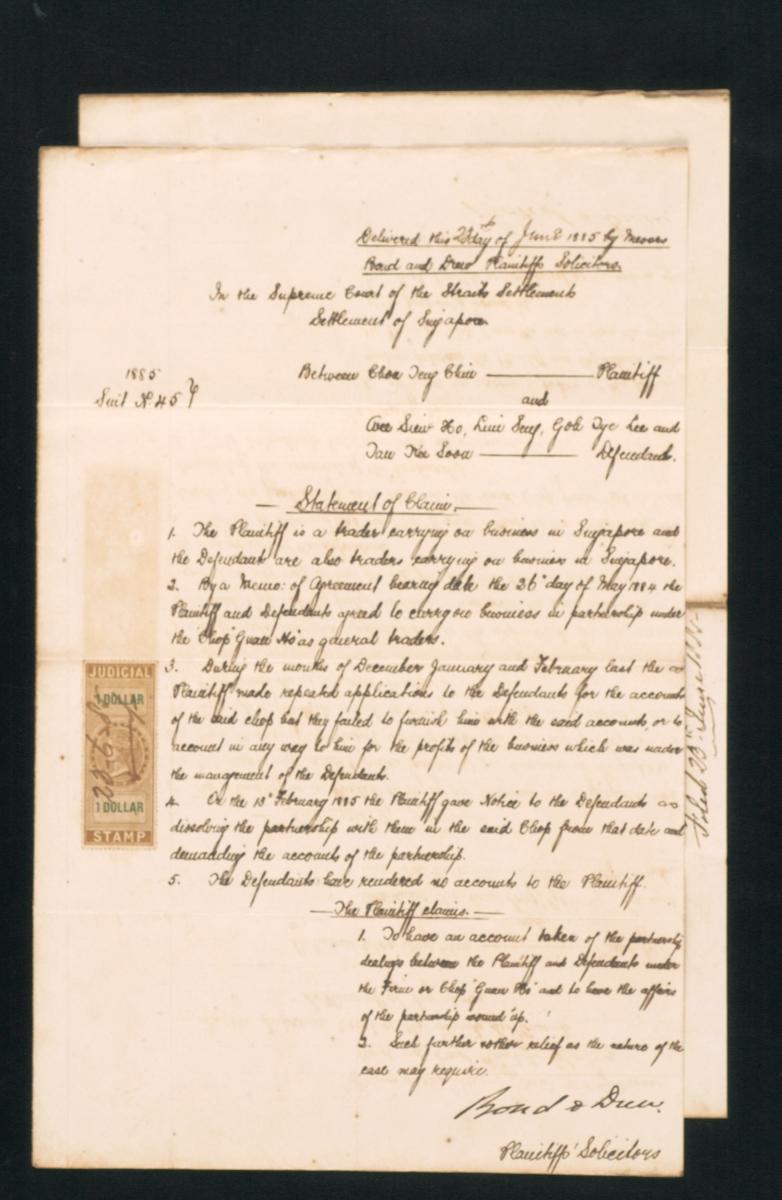 Delivered this 23th day of June 1885 by Messrs
Bond and Drew Plaintiffs Solicitors.
In the Supreme Court of the Straits Settlements
Settlement of Singapore.
1885
Suit No. 45
Between Choa Teng Chin Plaintiff
and
Siew Ho, Lim Seng, Goh Tye Lee and
Tan Kee Soon Defendants.
Statement of Claim.
1. The Plaintiff is a trader carrying on business in Singapore and
the Defendants are also traders carrying on business in Singapore.
2. By a Memo: of Agreement bearing date the 26th day of May 1884 the
Plaintiff and Defendants agreed to carry on business in partnership under
the Chop "Guan Ho" as general traders.
3. During the months of December January and February last the
Plaintiff made repeated applications to the Defendants for the accounts
of the said chop but they failed to furnish him with the said accounts, or to
account in any way to him for the profits of the business which was under
the management of the Defendants.
4. On the 13th February 1885 the Plaintiff gave Notice to the Defendants as
dissolving the partnership with them in the said Chop from that date and
demanding the accounts of the partnership.
5. The Defendants have rendered no accounts to the Plaintiff.
The Plaintiff claims.
1. To have an account taken of the partnership
dealings between the Plaintiff and Defendants under
the Firm or Chop "Guan Ho" and to have the affairs
of the partnership wound up.
2. Such further or other relief as the nature of the
case may require.
Bond & Drew.
Plaintiffs' Solicitors
JUDICIAL
1 DOLLAR
23-6-85
1 DOLLAR
STAMP
Filed 23rd June 1885